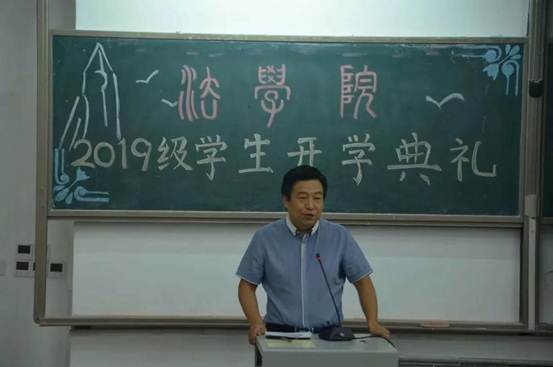 法學院
2019级学生开学典礼